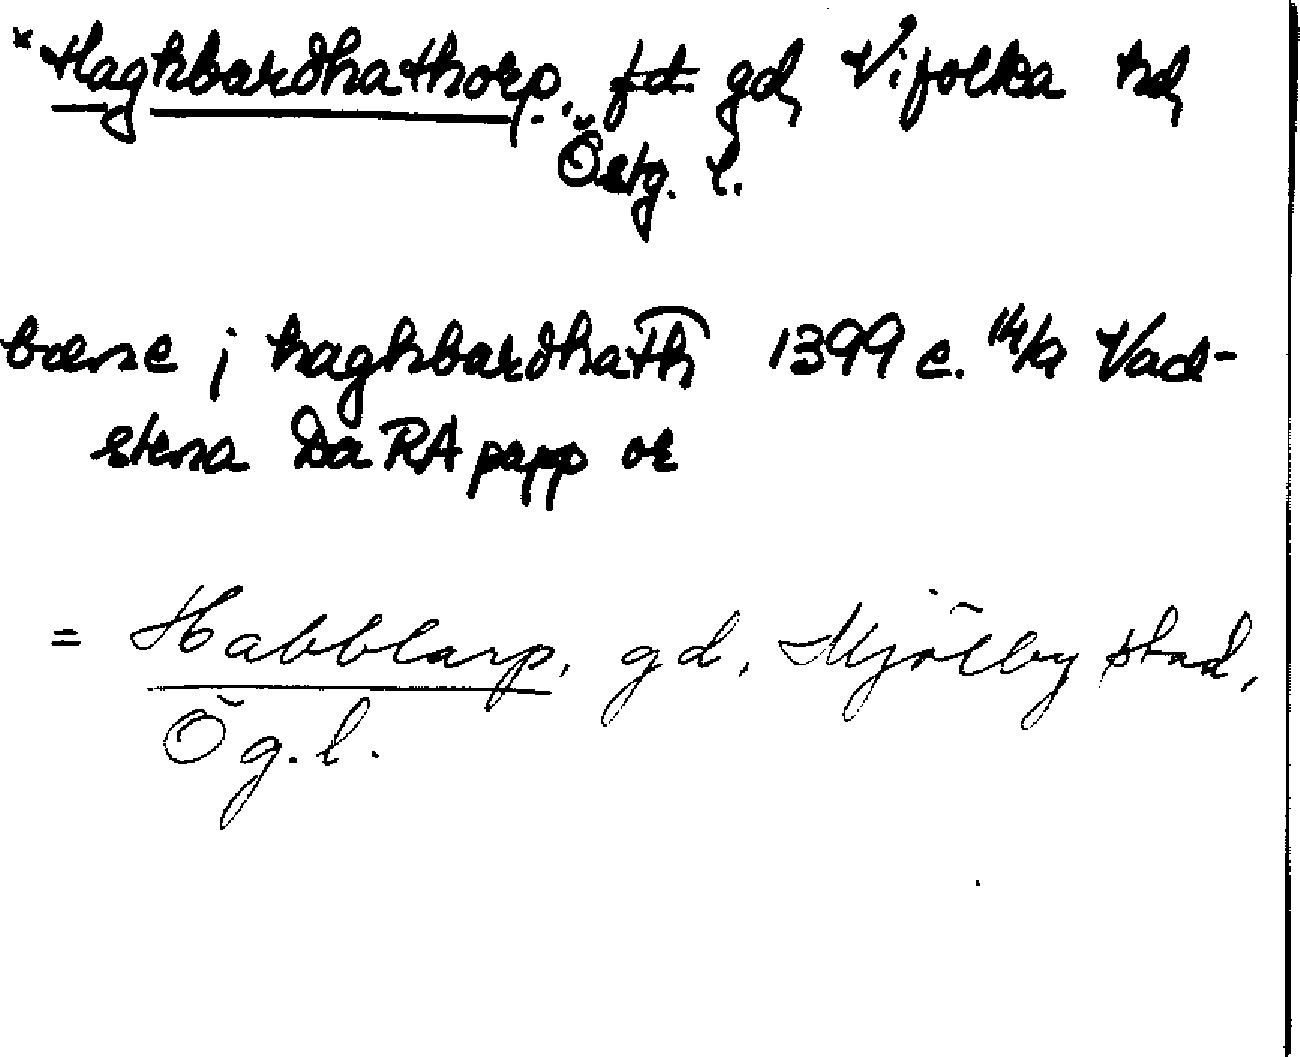 *Haghbardhathorp, fd gd, Vifolka hd,
Östg. l.
bœrse j haghbardhath 1399 e. 14/9 Vad-
stena Da RA papp or
= Habblarp, gd, Mjölby stad,
Ög. l.